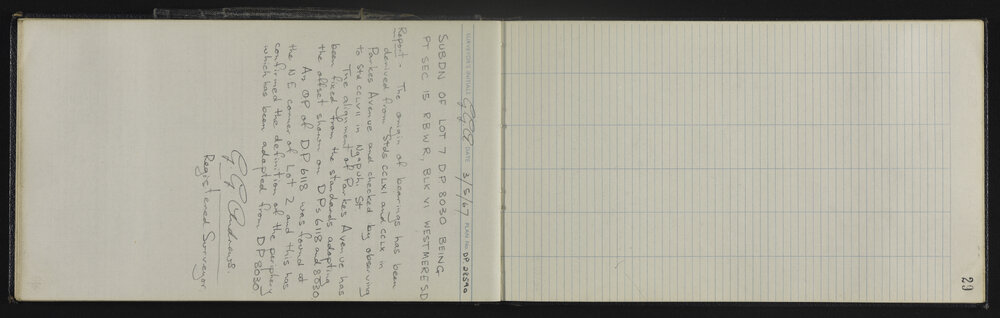 SURVEYOR'S INITIALS GGA DATE 3/5/67 PLAN No. DP 28590
SUBDN OF LOT 7 DP 8030 BEING
PT SEC 15 R.B.W.R., BLK VI WESTMERE S.D
Report - The origin of bearings has been
derived from Stds CCLXI and CCLX in
Parkes Avenue and checked by observing
to Std CCLVII in Ngapuhi St
The alignment of Parkes Avenue has
been fixed from the standards adopting
the offset shown on DPs 6118 and 8030
An OP of DP 6118 was found at
the NE corner of Lot 2 and this has
confirmed the definition of the periphery
which has been adopted from DP 8030
G G Andrews.
Registered Surveyor
29